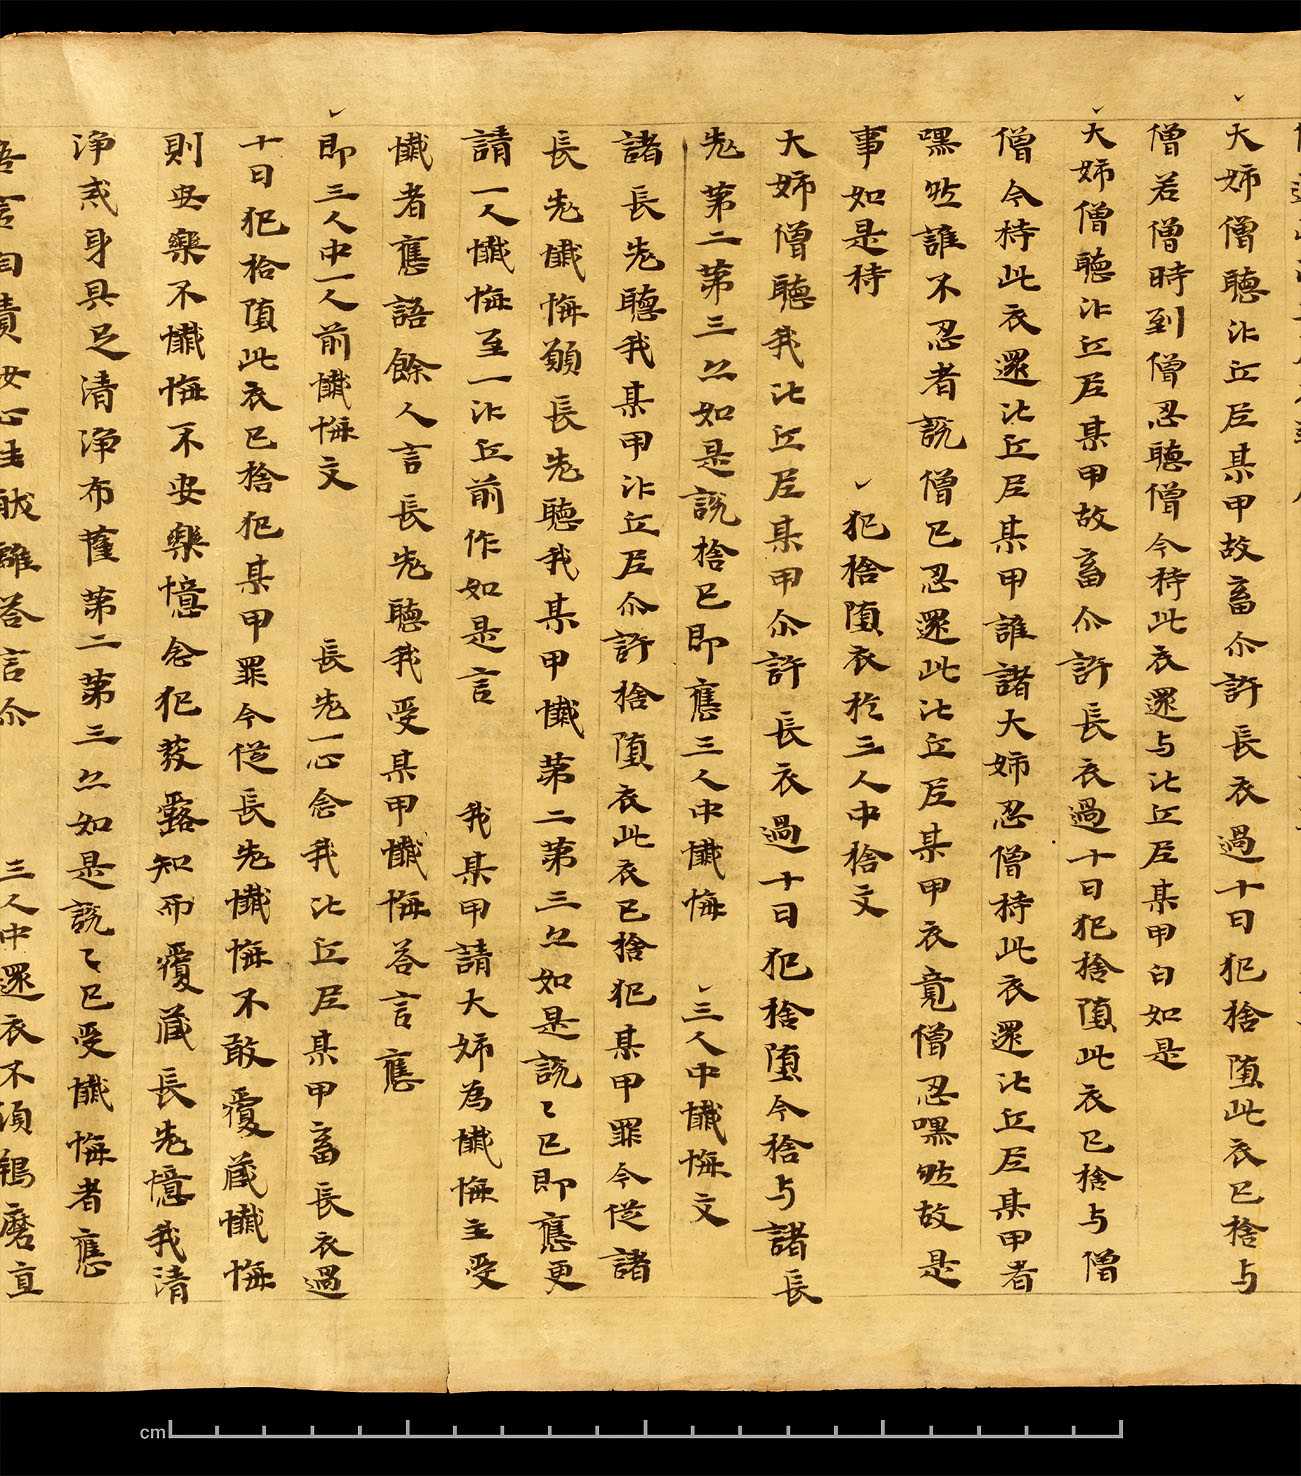 大姉僧聽比丘尼某甲故畜尒許長衣過十日犯捨墮此衣已捨与
僧若僧時到僧忍聽僧今持此衣還与比丘尼某甲白如是
大姉僧聽比丘尼某甲故畜尒許長衣過十日犯捨墮此衣已捨与僧
僧今持此衣還比丘尼某甲誰諸大姉忍僧持此衣還比丘尼某甲者
嘿然誰不忍者說僧已忍還此比丘尼某甲衣竟僧忍嘿然故是
事如是持 犯捨墮衣於三人中捨文
大姉僧聽我比丘尼某甲尒許長衣過十日犯捨墮今捨与諸長
老第二第三亦如是說捨已即應三人中懺悔 三人中懺悔文
諸長老聽我某甲比丘尼尒許捨墮衣此衣已捨犯某甲罪今從諸
長老懺悔願長老聽我某甲懺第二第三亦如是說〻已即應更
請一人懺悔至一比丘前作如是言 我某甲請大姉為懺悔主受
懺者應語餘人言長老聽我受某甲懺悔答言應
即三人中一人前懺悔文 長老一心念我比丘尼某甲畜長衣過
十日犯捨墮此衣已捨犯某甲罪今從長老懺悔不敢覆藏懺悔
則安樂不懺悔不安樂憶念犯發露知而覆藏長老憶我清
淨戒身具足清淨布薩第二第三亦如是說〻已受懺悔者應
語言自責汝心生猒離答言尒 三人中還衣不須羯磨直